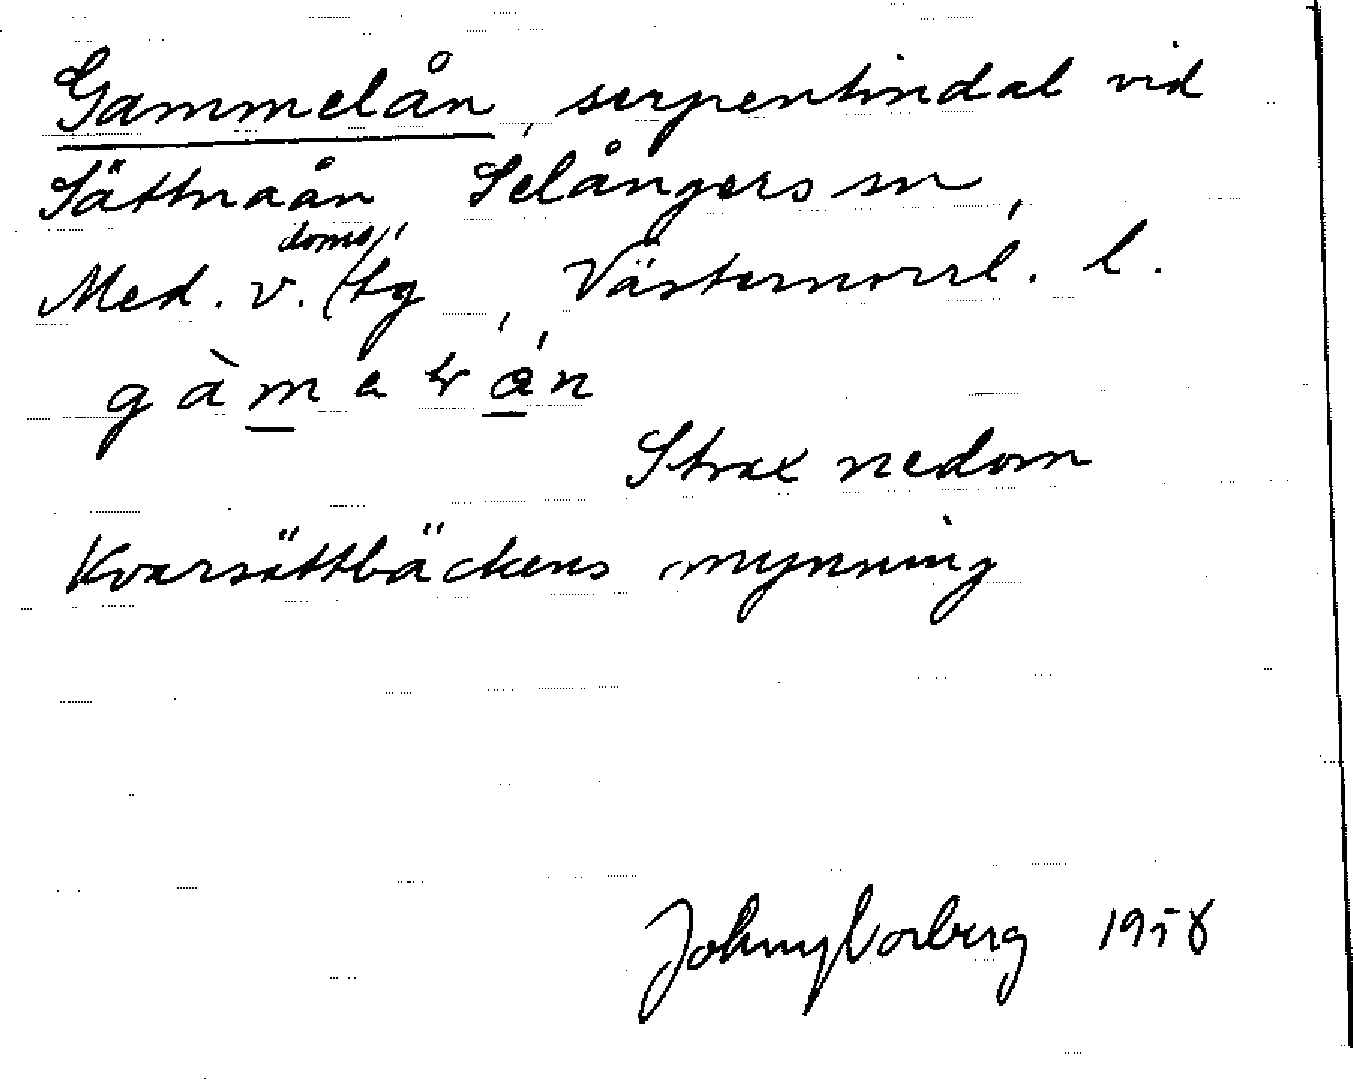 Gammelån, serpentindal vid
Sättnaån Selångers sn,
Med. v. doms/tg, Västernorrl. l.
gàmaɫån
Strax nedom
Kvarsättbäckens mynning
Johnny Norberg 1958